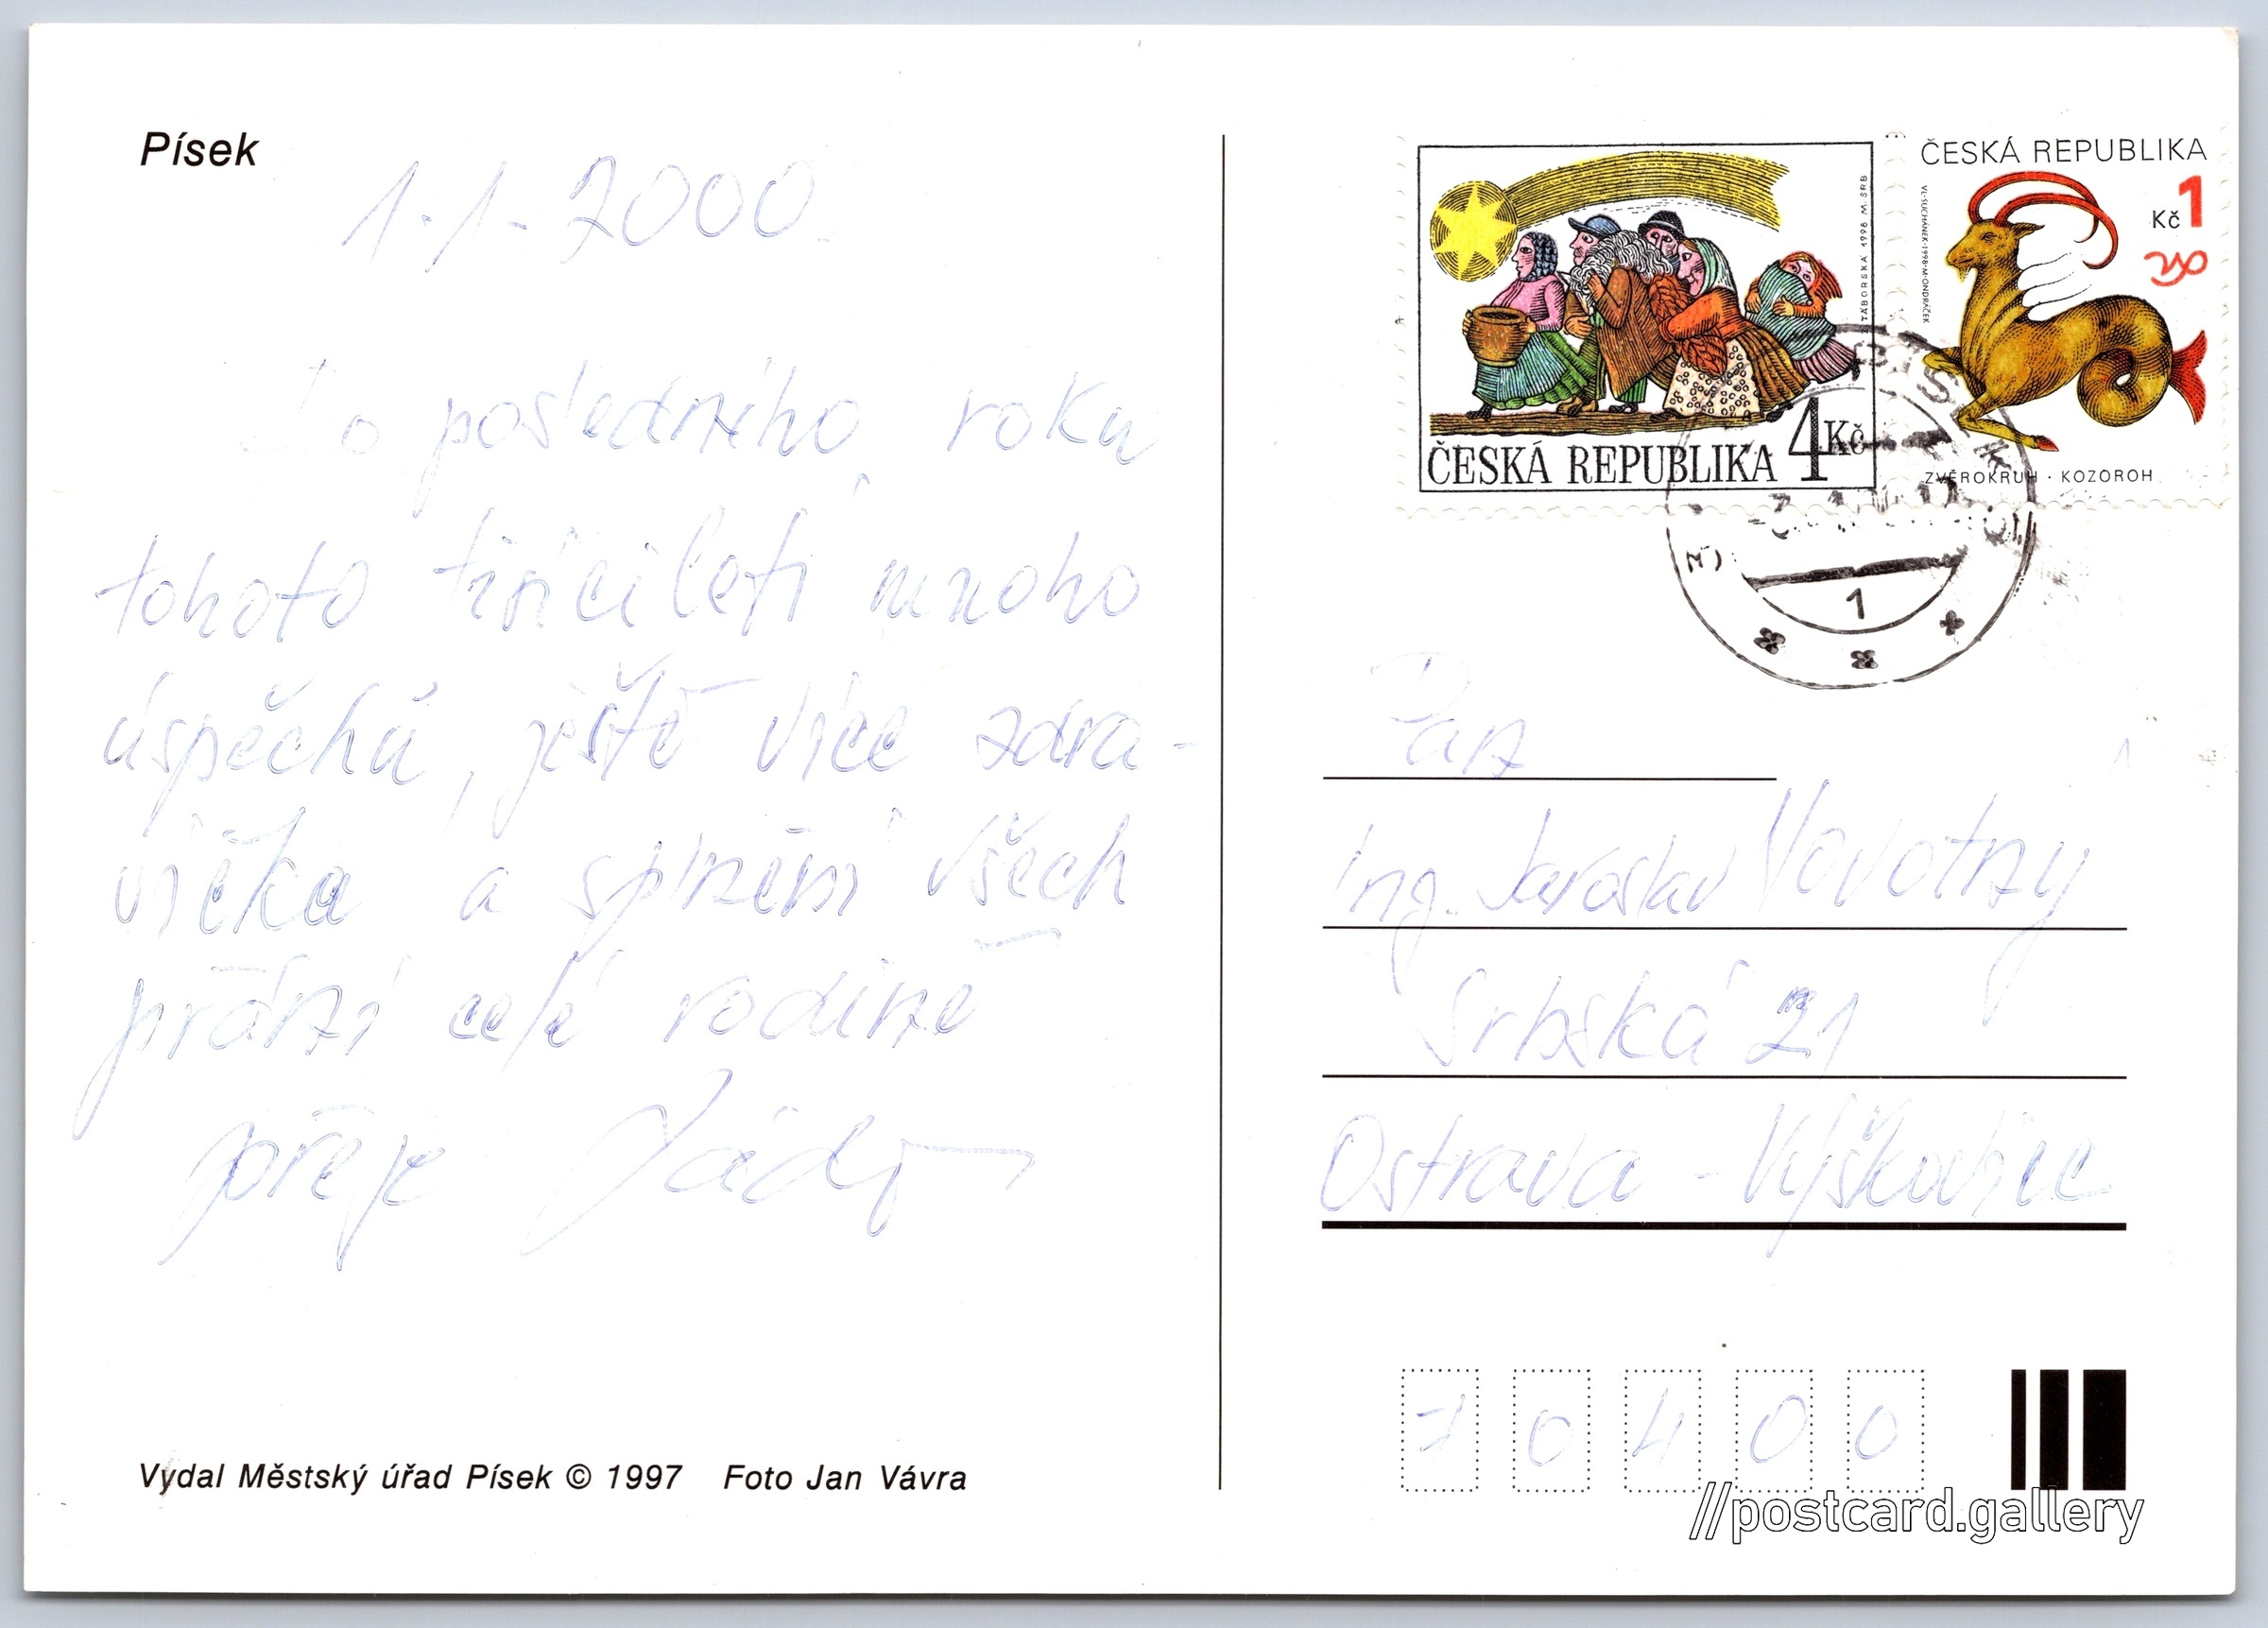 Písek
1.1.2000
Do posledního roku
tohoto tisíciletí mnoho
úspěchů, ještě více zdra-
víčka a splnění všech
přání celé rodině
přeje
Vydal Městský úřad Písek © 1997 Foto Jan Vávra
ČESKÁ REPUBLIKA 4Kč
TÁBORSKÁ 1998 M. SRB
ČESKÁ REPUBLIKA
Kč 1
VL. SUCHÁNEK · 1998 · M. ONDRÁČEK
ZVĚROKRUH · KOZOROH
PÍSEK
1
Pan
Ing. Jaroslav Novotny
Srbská 21
Ostrava - Výškovice
70400
//postcard.gallery